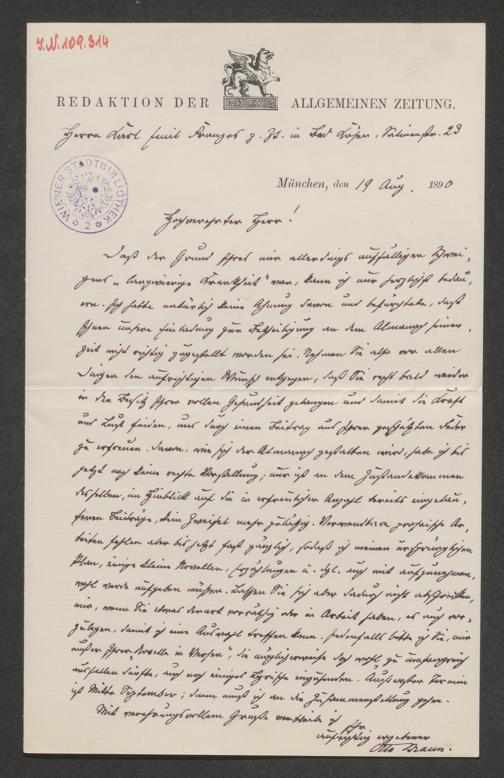 J.N. 109.314
REDAKTION DER ALLGEMEINEN ZEITUNG.
Herrn Karl Emil Franzos z. Zt. in Bad Kösen, Salinenstr. 23
WIENER STADTBIBLIOTHEK
2
München, den 19 Aug. 1890
Hochverehrter Herr!
Daß der Grund Ihres mir allerdings auffälligen Schwei-
gens „langwierige Krankheit“ war, kann ich nur herzlichst bedau-
ern. Ich hatte natürlich keine Ahnung davon und befürchtete, daß
Ihnen unsere Einladung zur Betheiligung an dem Almanach seiner-
zeit nicht richtig zugestellt worden sei. Nehmen Sie also vor allen
Dingen den aufrichtigen Wunsch entgegen, daß Sie recht bald wieder
in den Besitz Ihrer vollen Gesundheit gelangen und damit die Kraft
und Lust finden, uns durch einen Beitrag aus Ihrer geschätzten Feder
zu erfreuen. Davon, wie sich der Almanach gestalten wird, habe ich bis
jetzt noch keine rechte Vorstellung; nur ist an dem Zustandekommen
desselben, im Hinblick auf die in erfreulicher Anzahl bereits eingelau-
fenen Beiträge, kein Zweifel mehr zulässig. Verwendbare prosaische Ar-
beiten fehlen aber bis jetzt fast gänzlich, sodaß ich meinen ursprünglichen
Plan, einige kleine Novellen, Erzählungen u. dgl. auch mit aufzunehmen,
wohl werde aufgeben müssen. Lassen Sie sich aber dadurch nicht abschrecken,
mir, wenn Sie etwas derart vorräthig oder in Arbeit haben, es auch vor-
zulegen, damit ich eine Auswahl treffen kann. Jedenfalls bitte ich Sie, mir
außer Ihrer „Novelle in Versen“, die möglicherweise doch wohl zu umfangreich
ausfallen dürfte, auch noch einiges Lyrische einzusenden. Äußerster Termin
ist Mitte September; dann muß ich an die Zusammenstellung gehen.
Mit verehrungsvollem Gruße verbleibe ich
Ihr
aufrichtig ergebener
Otto Braun.